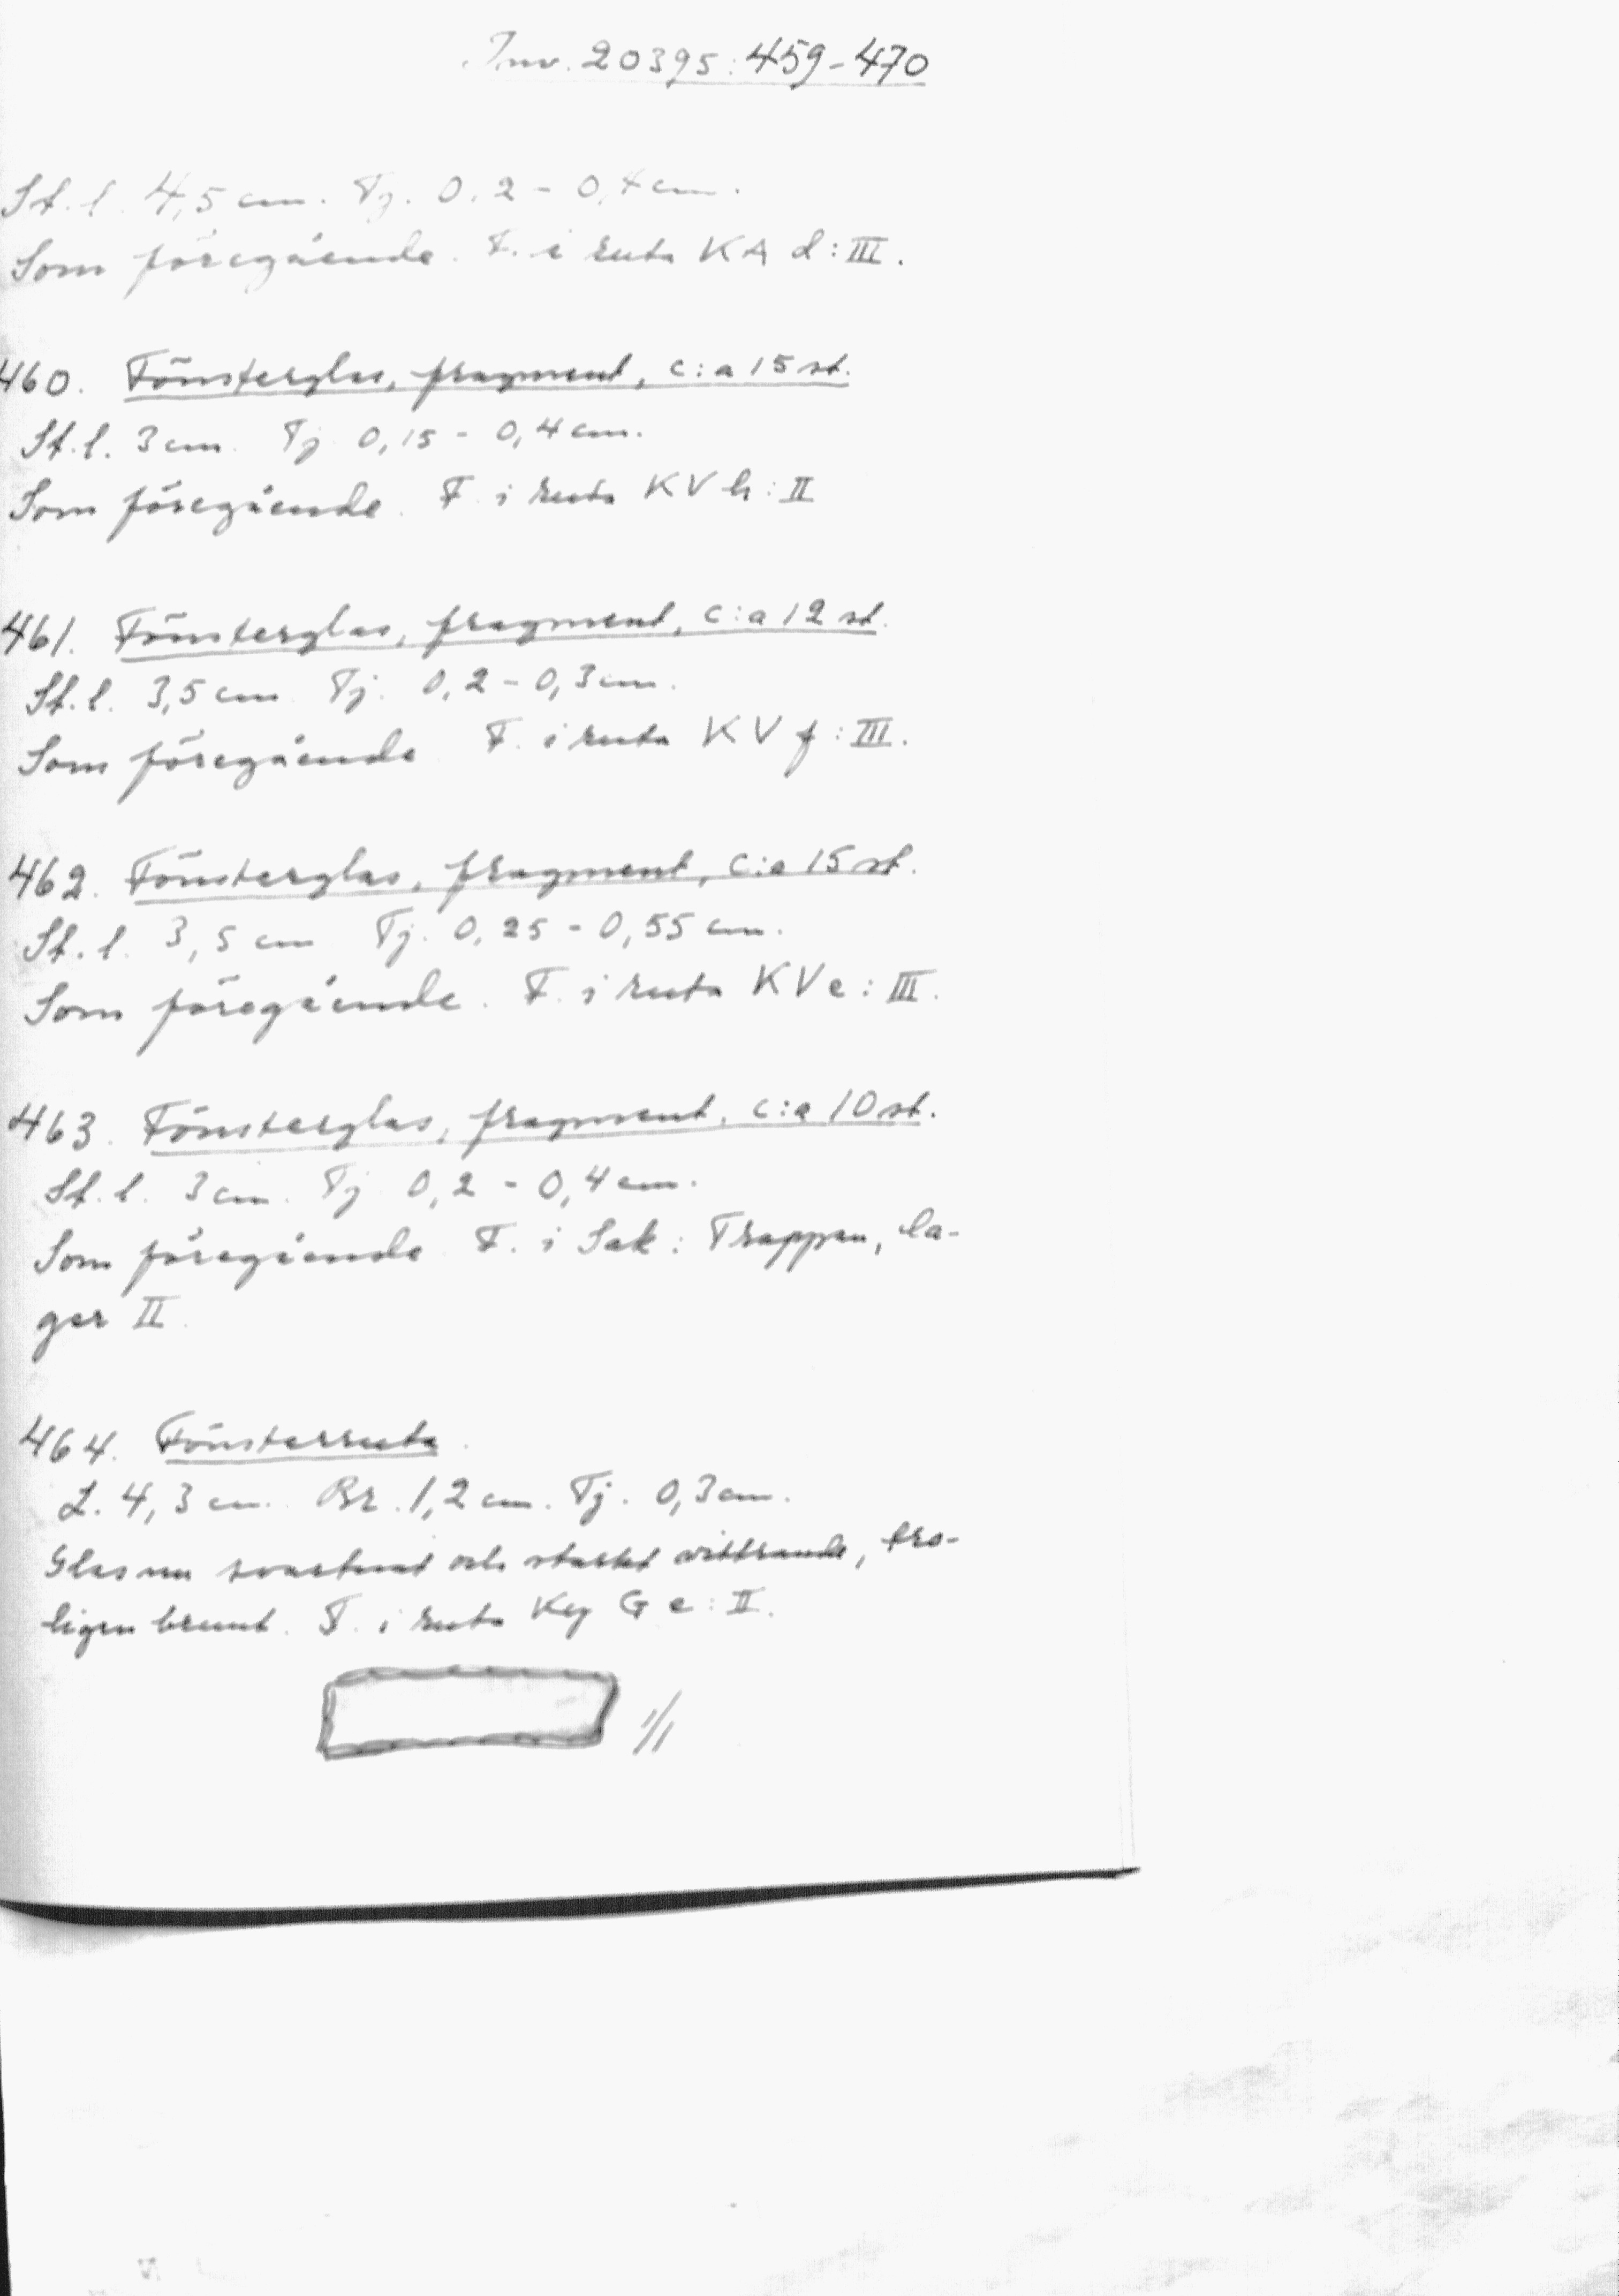 Inv. 20395:459-470
St. l. 4,5 cm. Tj. 0,2 - 0,4 cm.
Som föregående. F. i ruta KA d:III.
460. Fönsterglas, fragment, c:a 15 st.
St. l. 3 cm. Tj 0,15 - 0,4 cm.
Som föregående. F. i ruta KV h:II
461. Fönsterglas, fragment, c:a 12 st.
St. l. 3,5 cm. Tj. 0,2 - 0,3 cm.
Som föregående F. i ruta KV f:III.
462. Fönsterglas, fragment, c:a 15 st.
St. l. 3,5 cm Tj. 0,25 - 0,55 cm.
Som föregående. F. i ruta KV e:III.
463. Fönsterglas, fragment, c:a 10 st.
St. l. 3 cm. Tj 0,2 - 0,4 cm.
Som föregående F. i Sak: Trappan, la-
ger II.
464. Fönsterruta.
L. 4,3 cm. Br. 1,2 cm. Tj. 0,3 cm.
Glas nu svartnat och starkt vittrande, tro-
ligen brunt. F. i ruta G e:II.
1/1